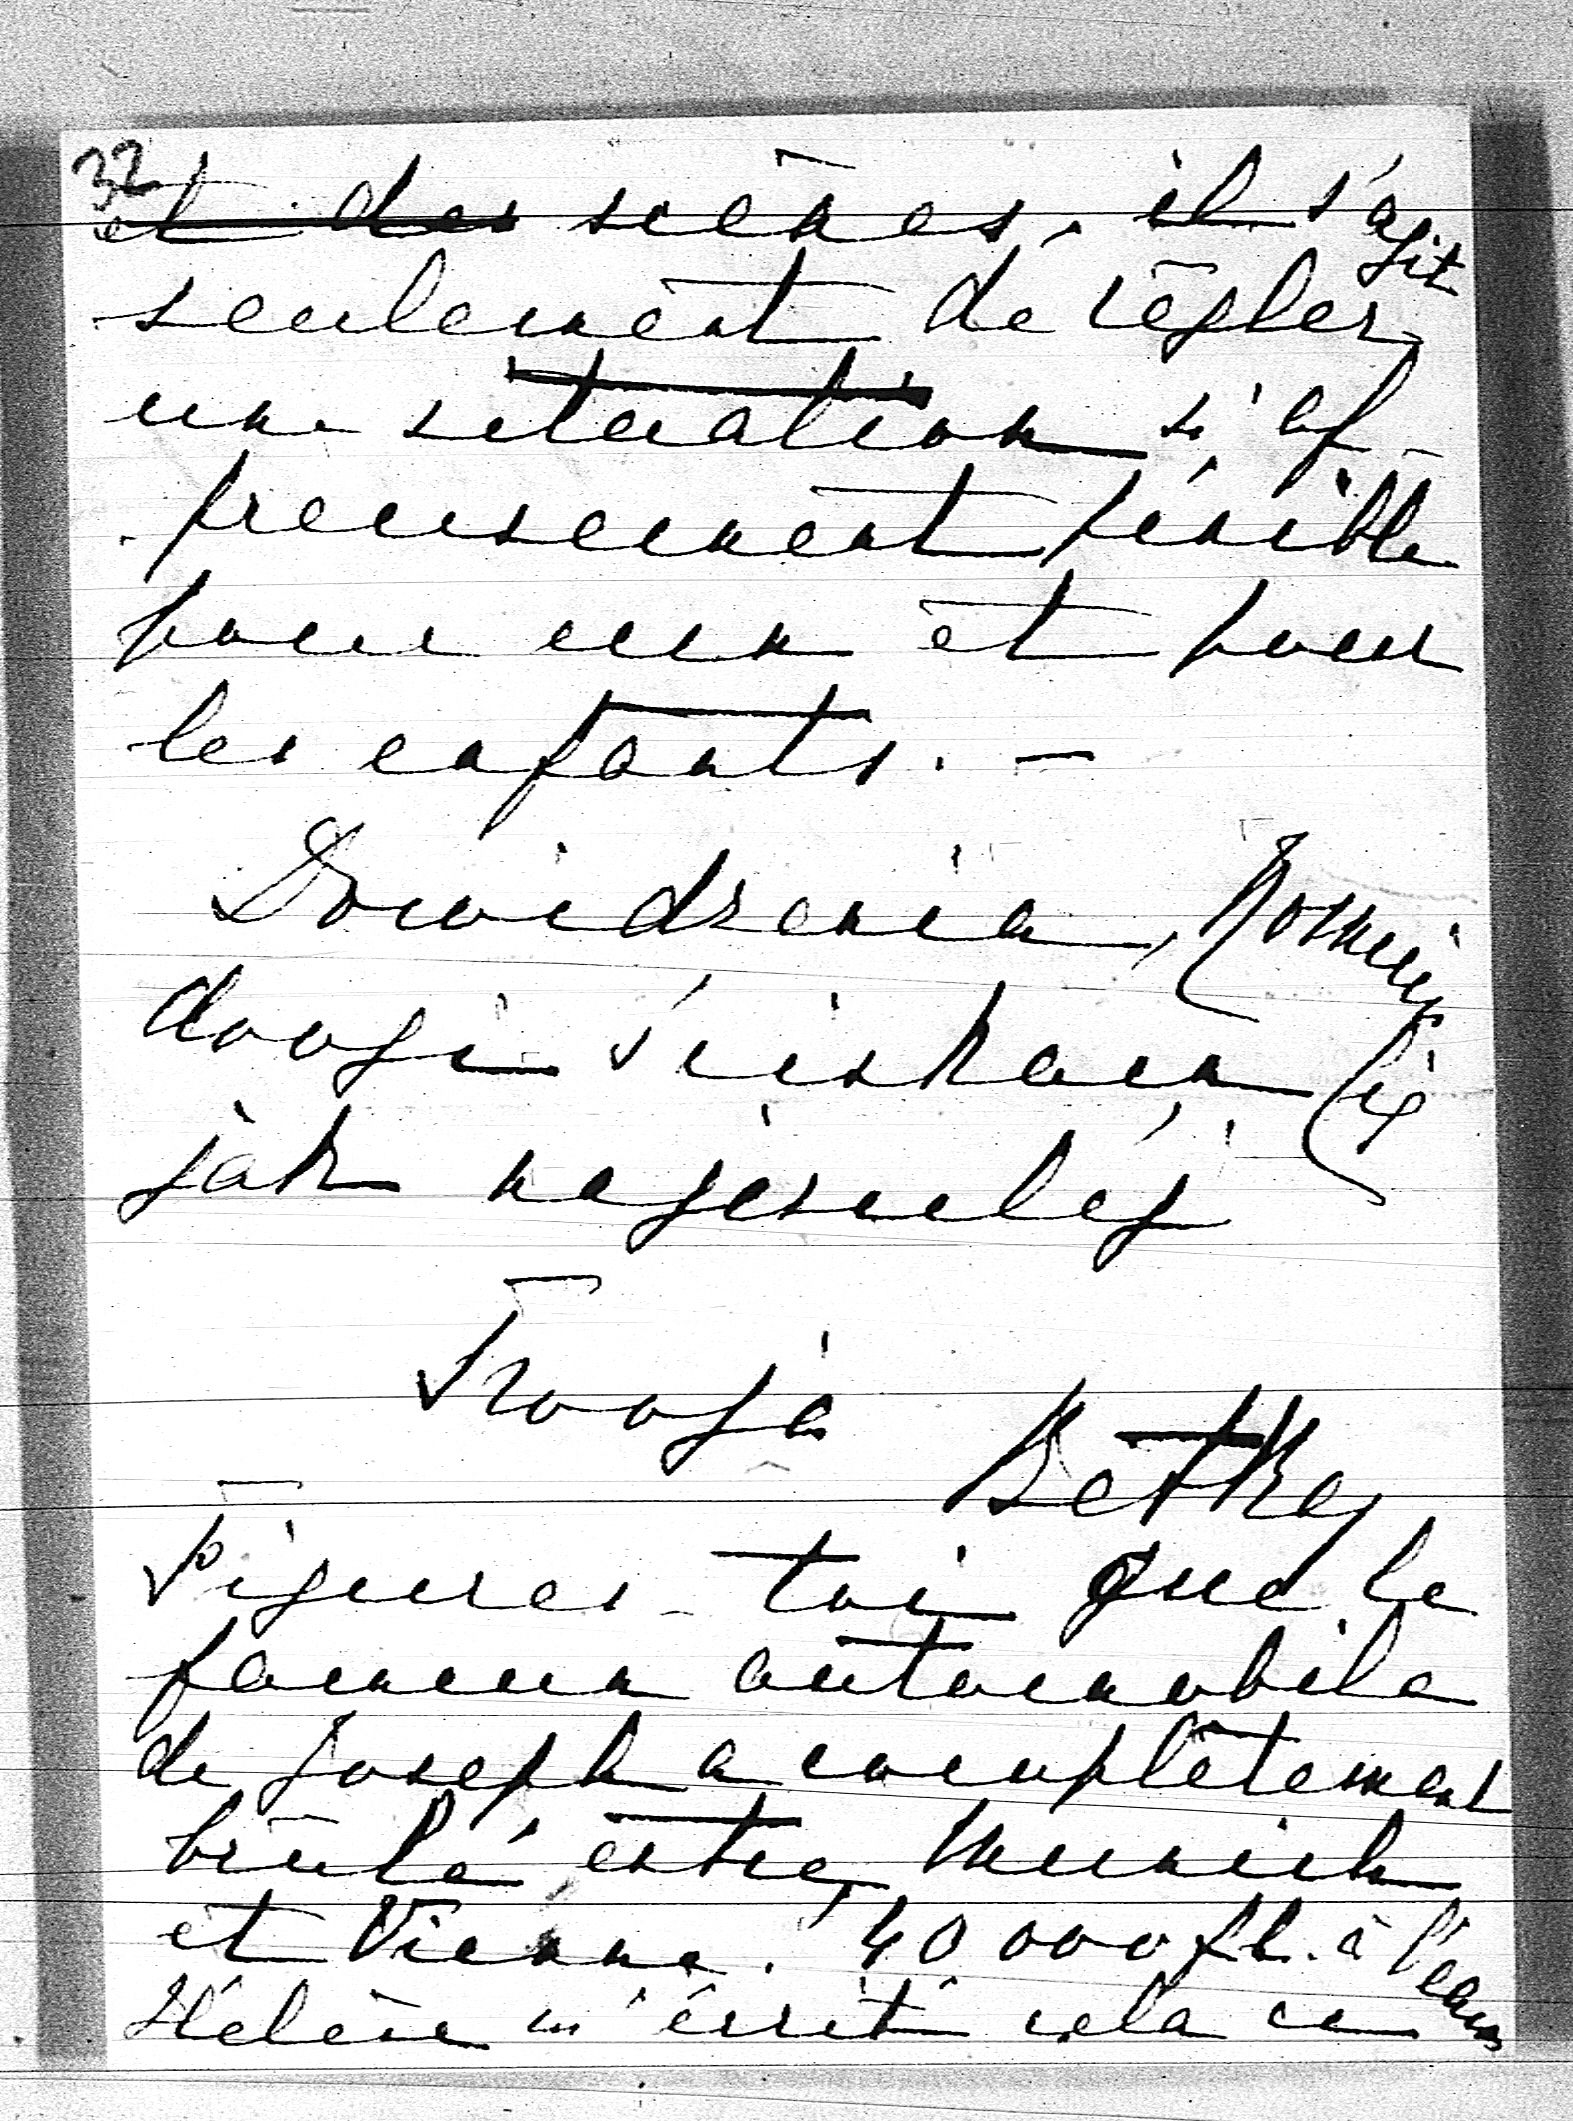 32
et des scènes, il s'agit
seulement de règler
une situation si af-
freusement pénible
pour eux et pour
les enfants. –
Dowidzenia, Romciu
drogi ściskam Cię
jak najczulej
Twoja
Betka
Figures-toi que le
fameux automobile
de Joseph a complètement
brûlé entre Munich
et Vienne. 40 000 fl. à l'eau
Hélène m'écrit cela ce